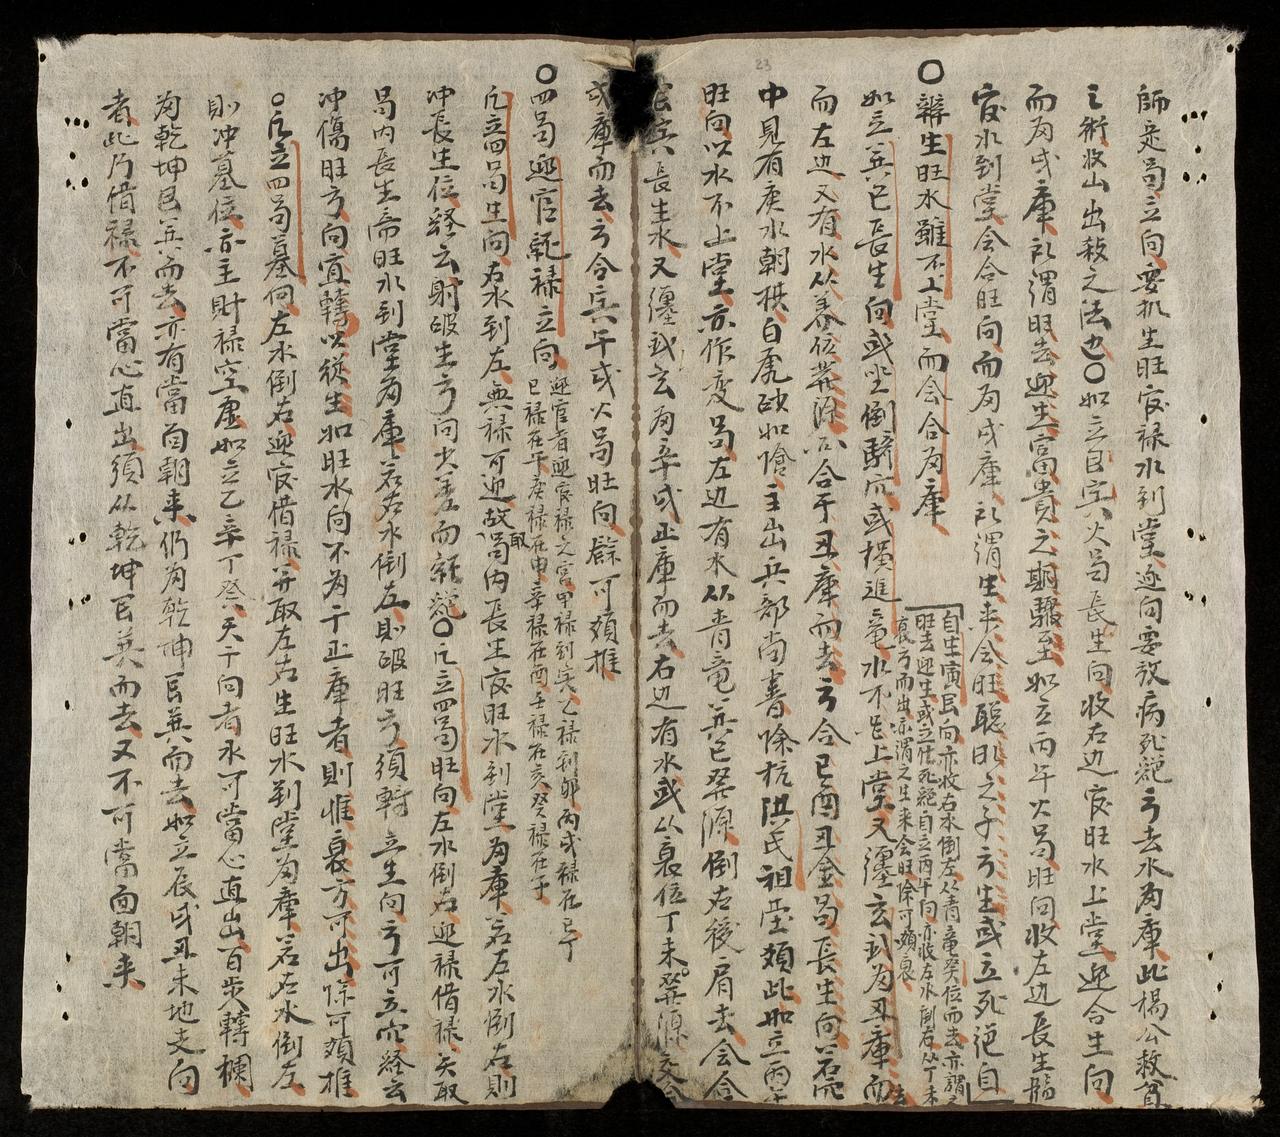 師定局立向要扒生旺官祿水到堂迎向要放病死絕方去水為庫此楊公救貧
之術收山出殺之法也〇如立艮寅火局長生向收右边官旺水上堂迎合生向
而為戌庫礼謂旺去迎生富貴之期驟至如立丙午火局旺向收左边長生臨
官水到堂会合旺向而為戌庫礼謂生来会旺聪明之子方生或立死绝自
自生寅艮向亦收右水倒左从青竜癸位而去亦謂之
旺去迎生或立仕死絕自立丙午向亦收左水倒右从丁未
衰方而出亦謂之生来会旺餘可類衰
〇辨生旺水雖不上堂而会合為庫
如立巽巳長生向或坐倒騎穴或横進竜水不上堂又纏玄武為丑庫而去
而左边又有水从養位發源合于丑庫而去方合巳酉丑金局長生向若穴
中見有庚水朝拱白虎砂如鎗主出兵部尚書餘杭洪氏祖堂類此如立丙午
旺向以水不上堂亦作变局左边有水从青竜巽巳發源倒右後肩去会合
寅長生水又纏玄武為辛戌正庫而去右边有水或从衰位丁未發源交会
戌庫而去方合寅午戌火局旺向餘可類推
〇四局迎官就祿立向
迎官者迎官祿之宮甲祿到寅乙祿到卯丙戊祿在巳丁
巳祿在午庚祿在申辛祿在酉壬祿在亥癸祿在子
凡立四局生向右水到左無祿可迎故取局内長生官旺水到堂為庫若左水倒右則
冲長生位経云射破生方向大差而就絕〇凡立四局旺向左水倒右迎祿借祿矣取
局内長生帝旺水到堂為庫若右水倒左則破旺方須轉立生向方可立穴経云
冲傷旺方向宜轉以従生如旺水向不為干正庫者則惟衰方可出餘可類推
〇凡立四局墓向左水倒右迎官借祿并取左右生旺水到堂為庫若右水倒左
則冲墓位亦主財祿空虚如立乙辛丁癸天干向者水可當心直出百步轉欄
為乾坤艮巽而去亦有當面朝来仍為乾坤艮巽而去如立辰戌丑未地支向
者此乃借祿不可當心直出須从乾坤艮巽而去又不可當面朝来